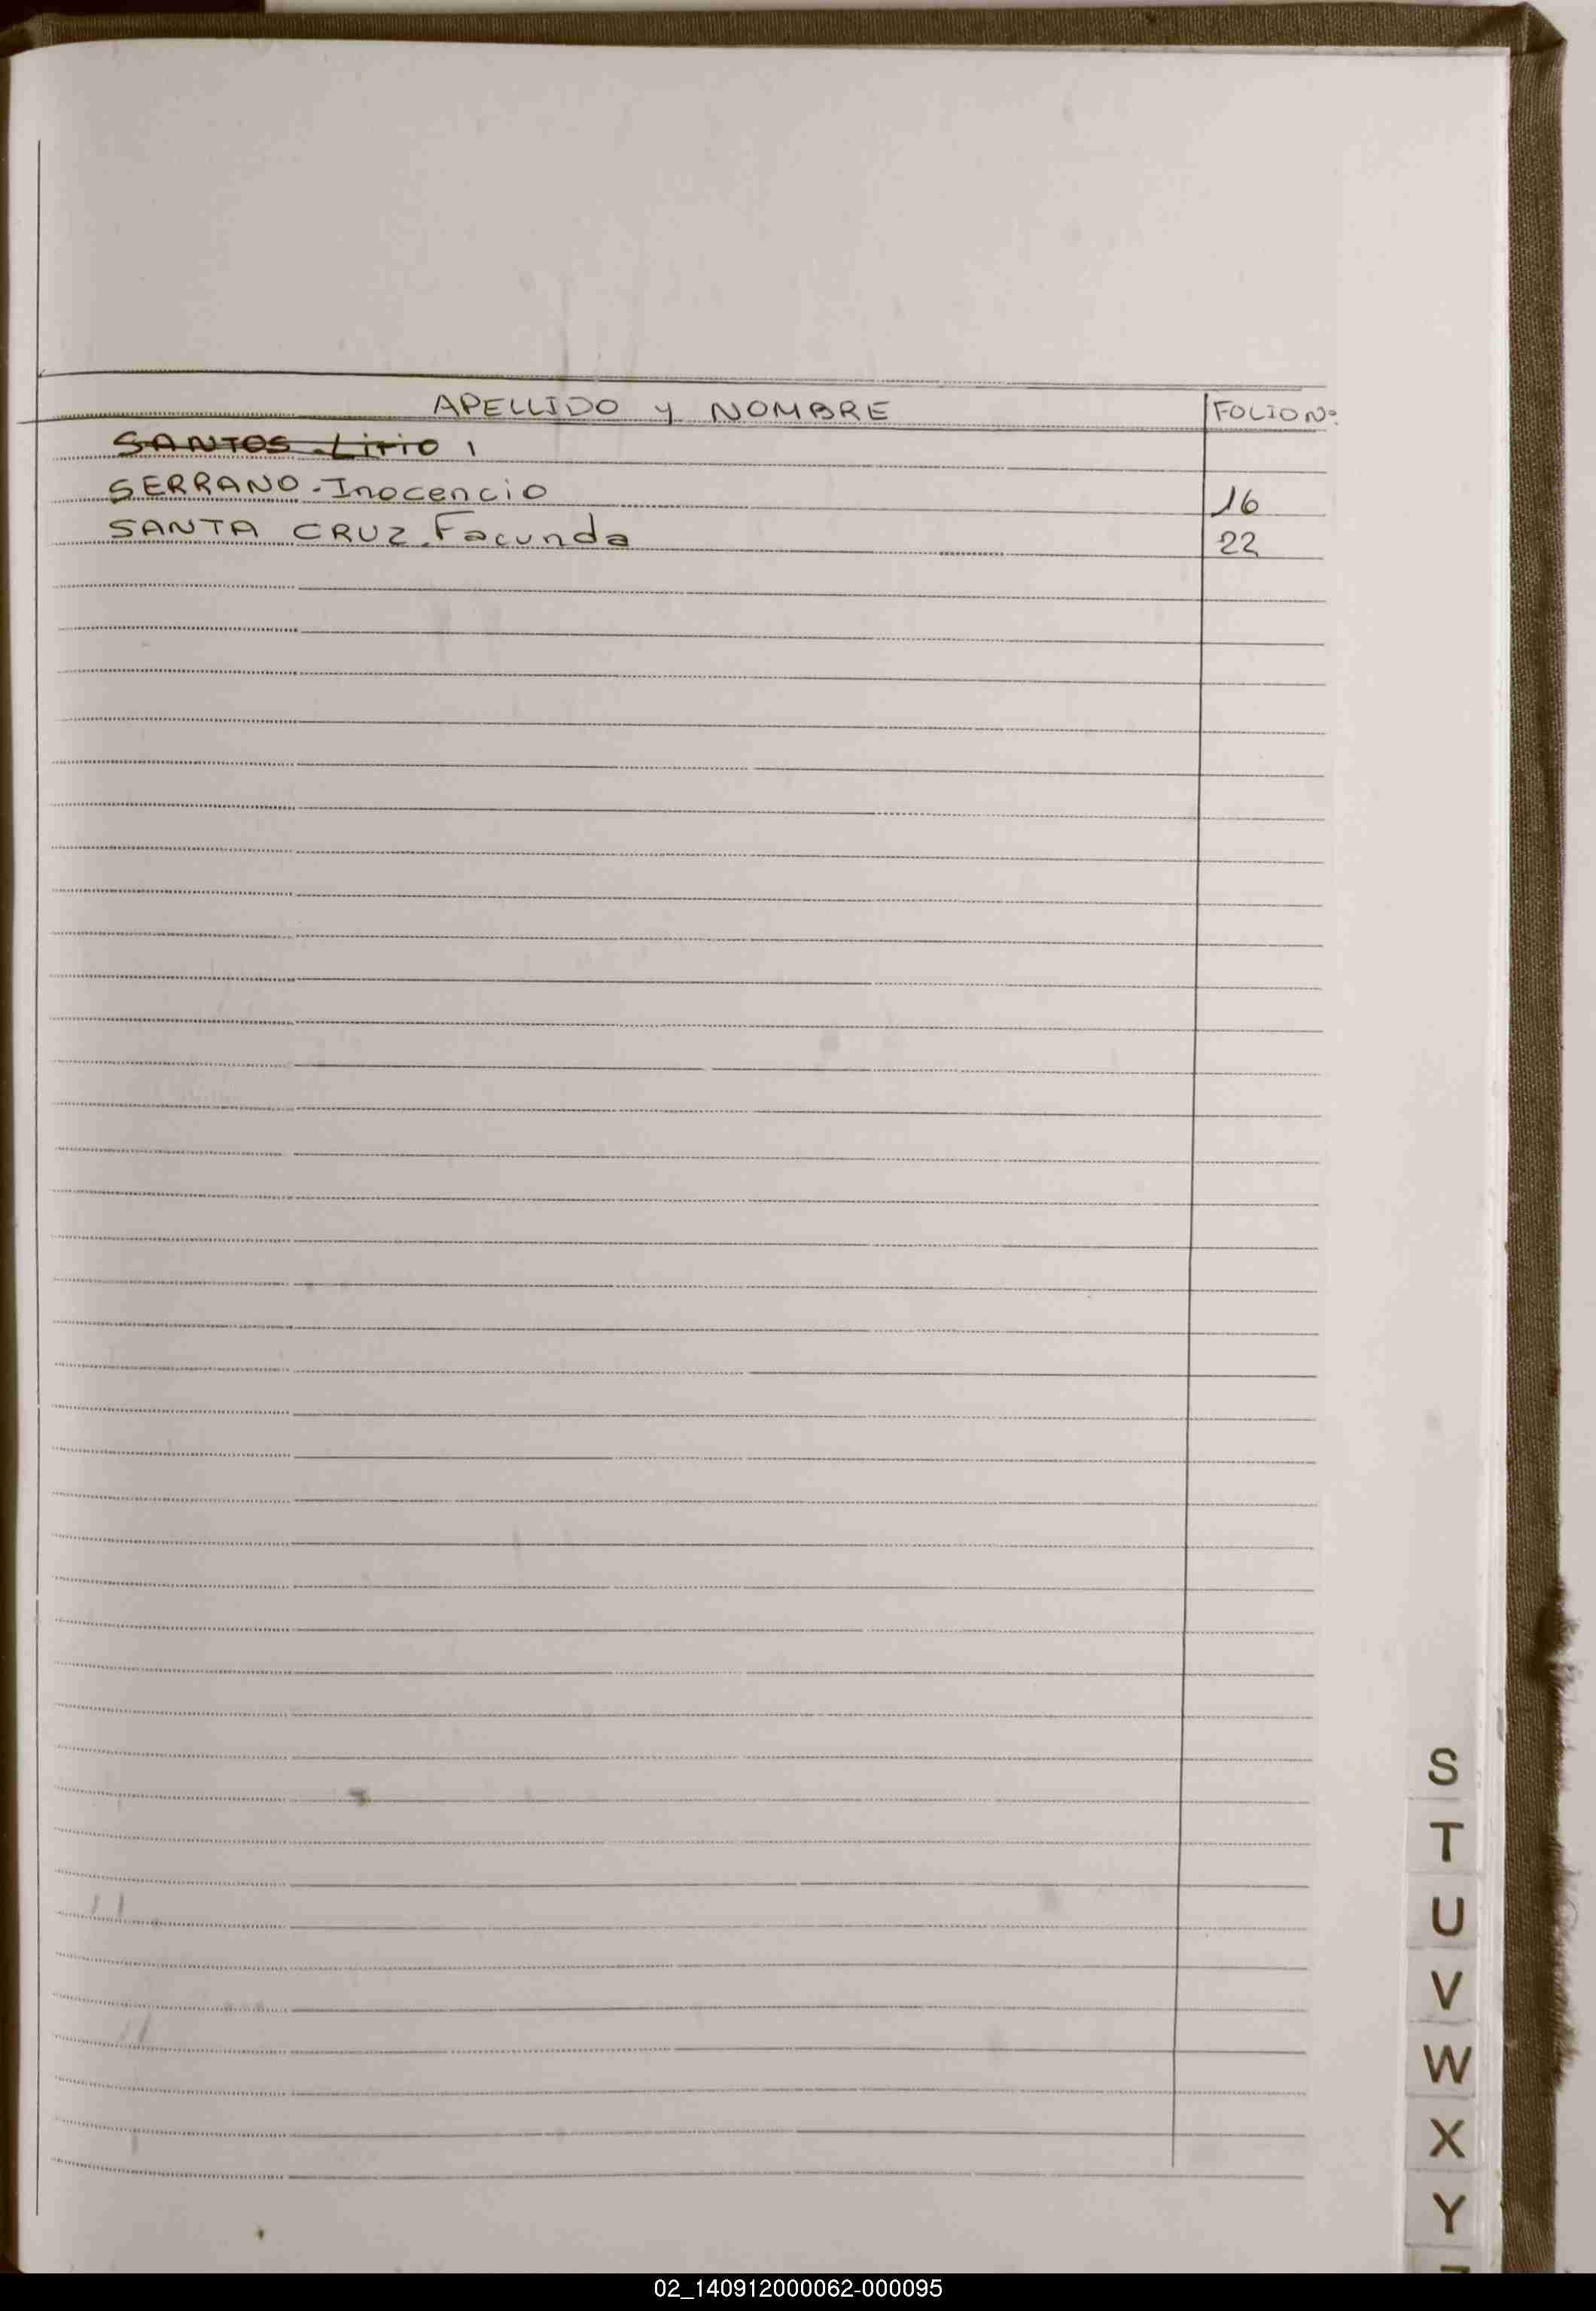 APELLIDO y NOMBRE FOLIO Nº
SANTOS
SERRANO - Inocencio 16
SANTA CRUZ - Facunda 22
S
T
U
V
W
X
Y
02_140912000062-000095